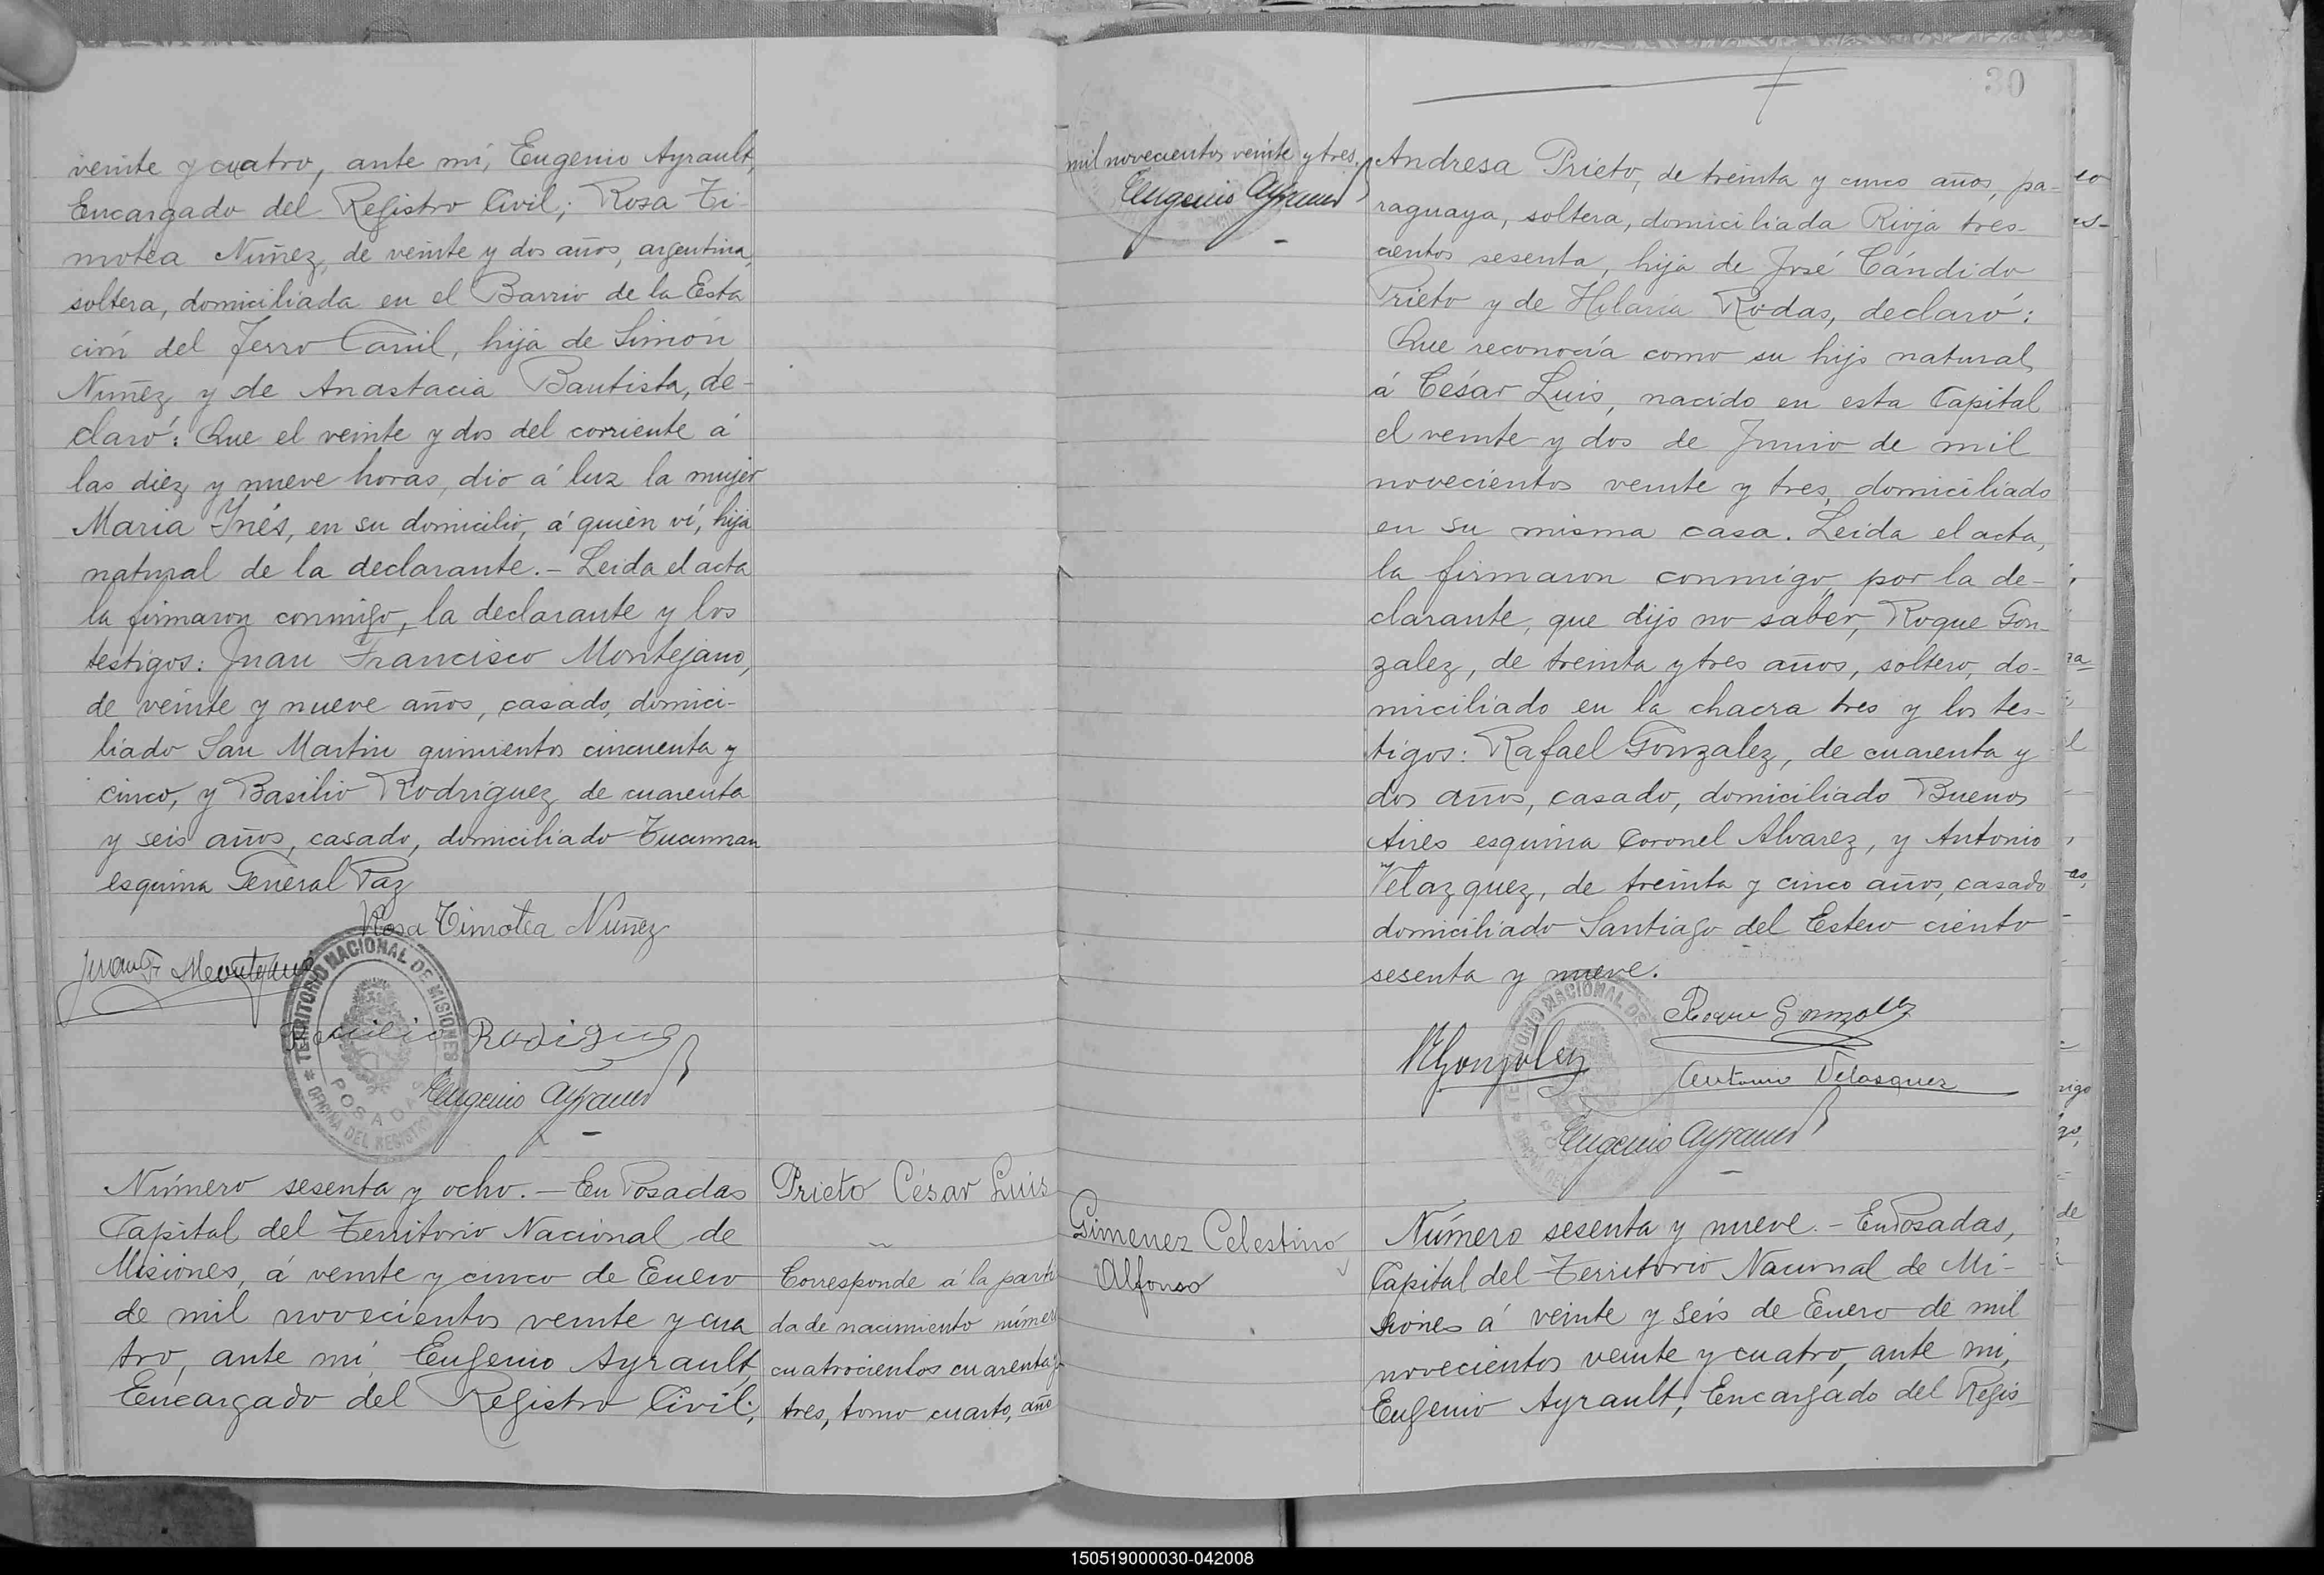 veinte y cuatro, ante mí, Eugenio Ayrault,
Encargado del Registro Civil; Rosa Ti-
motea Nuñez, de veinte y dos años, argentina,
soltera, domiciliada en el Barrio de la Esta
ción del Ferro Carril, hija de Simón
Nuñez y de Anastacia Bautista, de-
claró: Que el veinte y dos del corriente á
las diez y nueve horas, dio á luz la mujer
Maria Ynés, en su domicilio, á quien ví, hija
natural de la declarante.- Leida el acta
la firmaron conmigo, la declarante y los
testigos: Juan Francisco Montejano,
de veinte y nueve años, casado, domici-
liado San Martin quinientos cincuenta y
cinco, y Basilio Rodríguez, de cuarenta
y seis años, casado, domiciliado Tucuman
esquina General Paz
Rosa Timotea Nuñez
Juan F. Montejano
Basilio Rodigue
Eugenio Ayrault
TERRITORIO NACIONAL DE MISIONES
POSADAS
OFICINA DEL REGISTRO
Número sesenta y ocho.- En Posadas
Capital del Territorio Nacional de
Misiones, á veinte y cinco de Enero
de mil novecientos veinte y cua
tro, ante mí, Eugenio Ayrault,
Encargado del Registro Civil;
Prieto César Luis
Corresponde á la parti
da de nacimiento númer
cuatrocientos cuarenta y
tres, tomo cuarto, año
30
mil novecientos veinte y tres.
Eugenio Ayrault
Andresa Prieto, de treinta y cinco años, pa-
raguaya, soltera, domiciliada Rioja tres-
cientos sesenta, hija de José Cándido
Prieto y de Hilaria Rodas, declaró:
Que reconocía como su hijo natural
á César Luis, nacido en esta Capital
el veinte y dos de Junio de mil
novecientos veinte y tres, domiciliado
en su misma casa. Leida el acta,
la firmaron conmigo, por la de-
clarante, que dijo no saber, Roque Gon-
zalez, de treinta y tres años, soltero, do-
miciliado en la chacra tres y los tes-
tigos: Rafael Gonzalez, de cuarenta y
dos años, casado, domiciliado Buenos
Aires esquina Coronel Alvarez, y Antonio
Velazquez, de treinta y cinco años, casado
domiciliado Santiago del Estero ciento
sesenta y nueve.
Roque Gonzalez
R Gonzalez
Antonio Velasquez
Eugenio Ayrault
Gimenez Celestino
Alfonso
Número sesenta y nueve.- En Posadas,
Capital del Territorio Nacional de Mi-
siones á veinte y seis de Enero de mil
novecientos veinte y cuatro, ante mi,
Eugenio Ayrault, Encargado del Regis
150519000030-042008